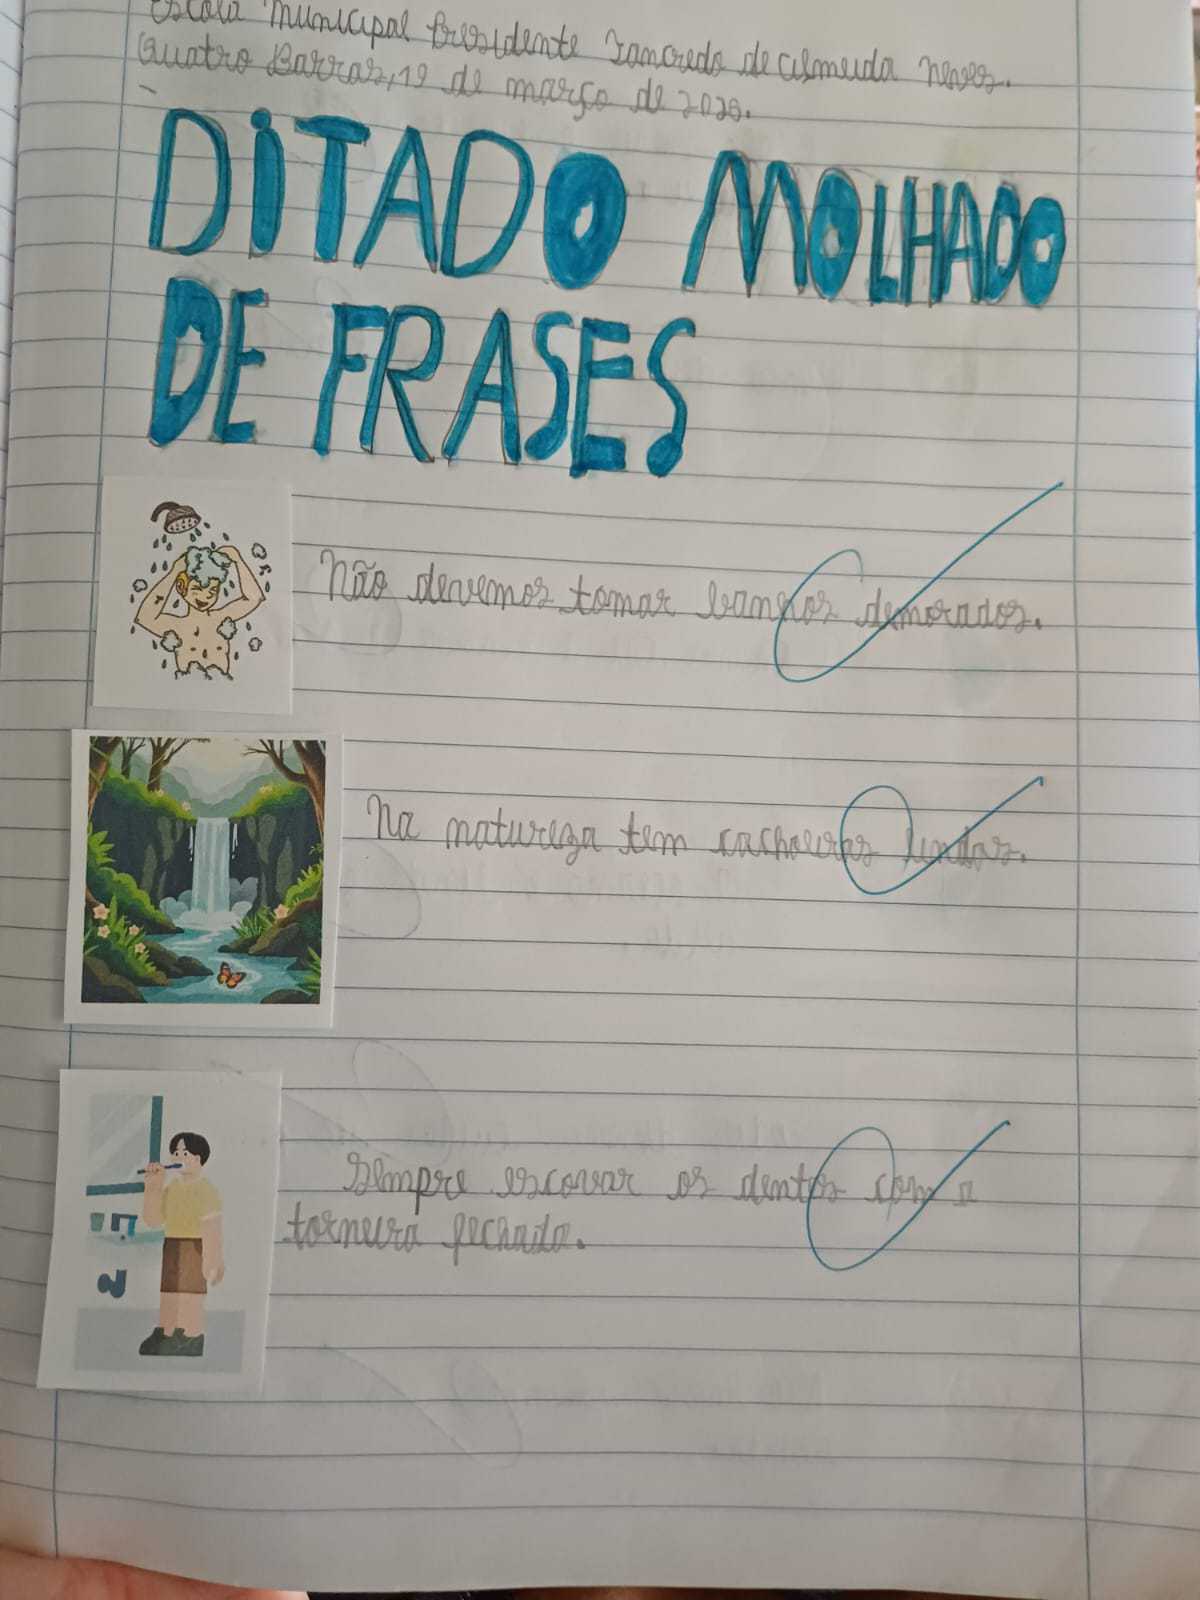 Escola Municipal Presidente Tancredo de Almeida Neves.
Quatro Barras, 19 de março de 2025.
DITADO MOLHADO
DE FRASES
Não devemos tomar banhos demorados.
Na natureza tem cachoeiras lindas.
Sempre escovar os dentes com a
torneira fechada.